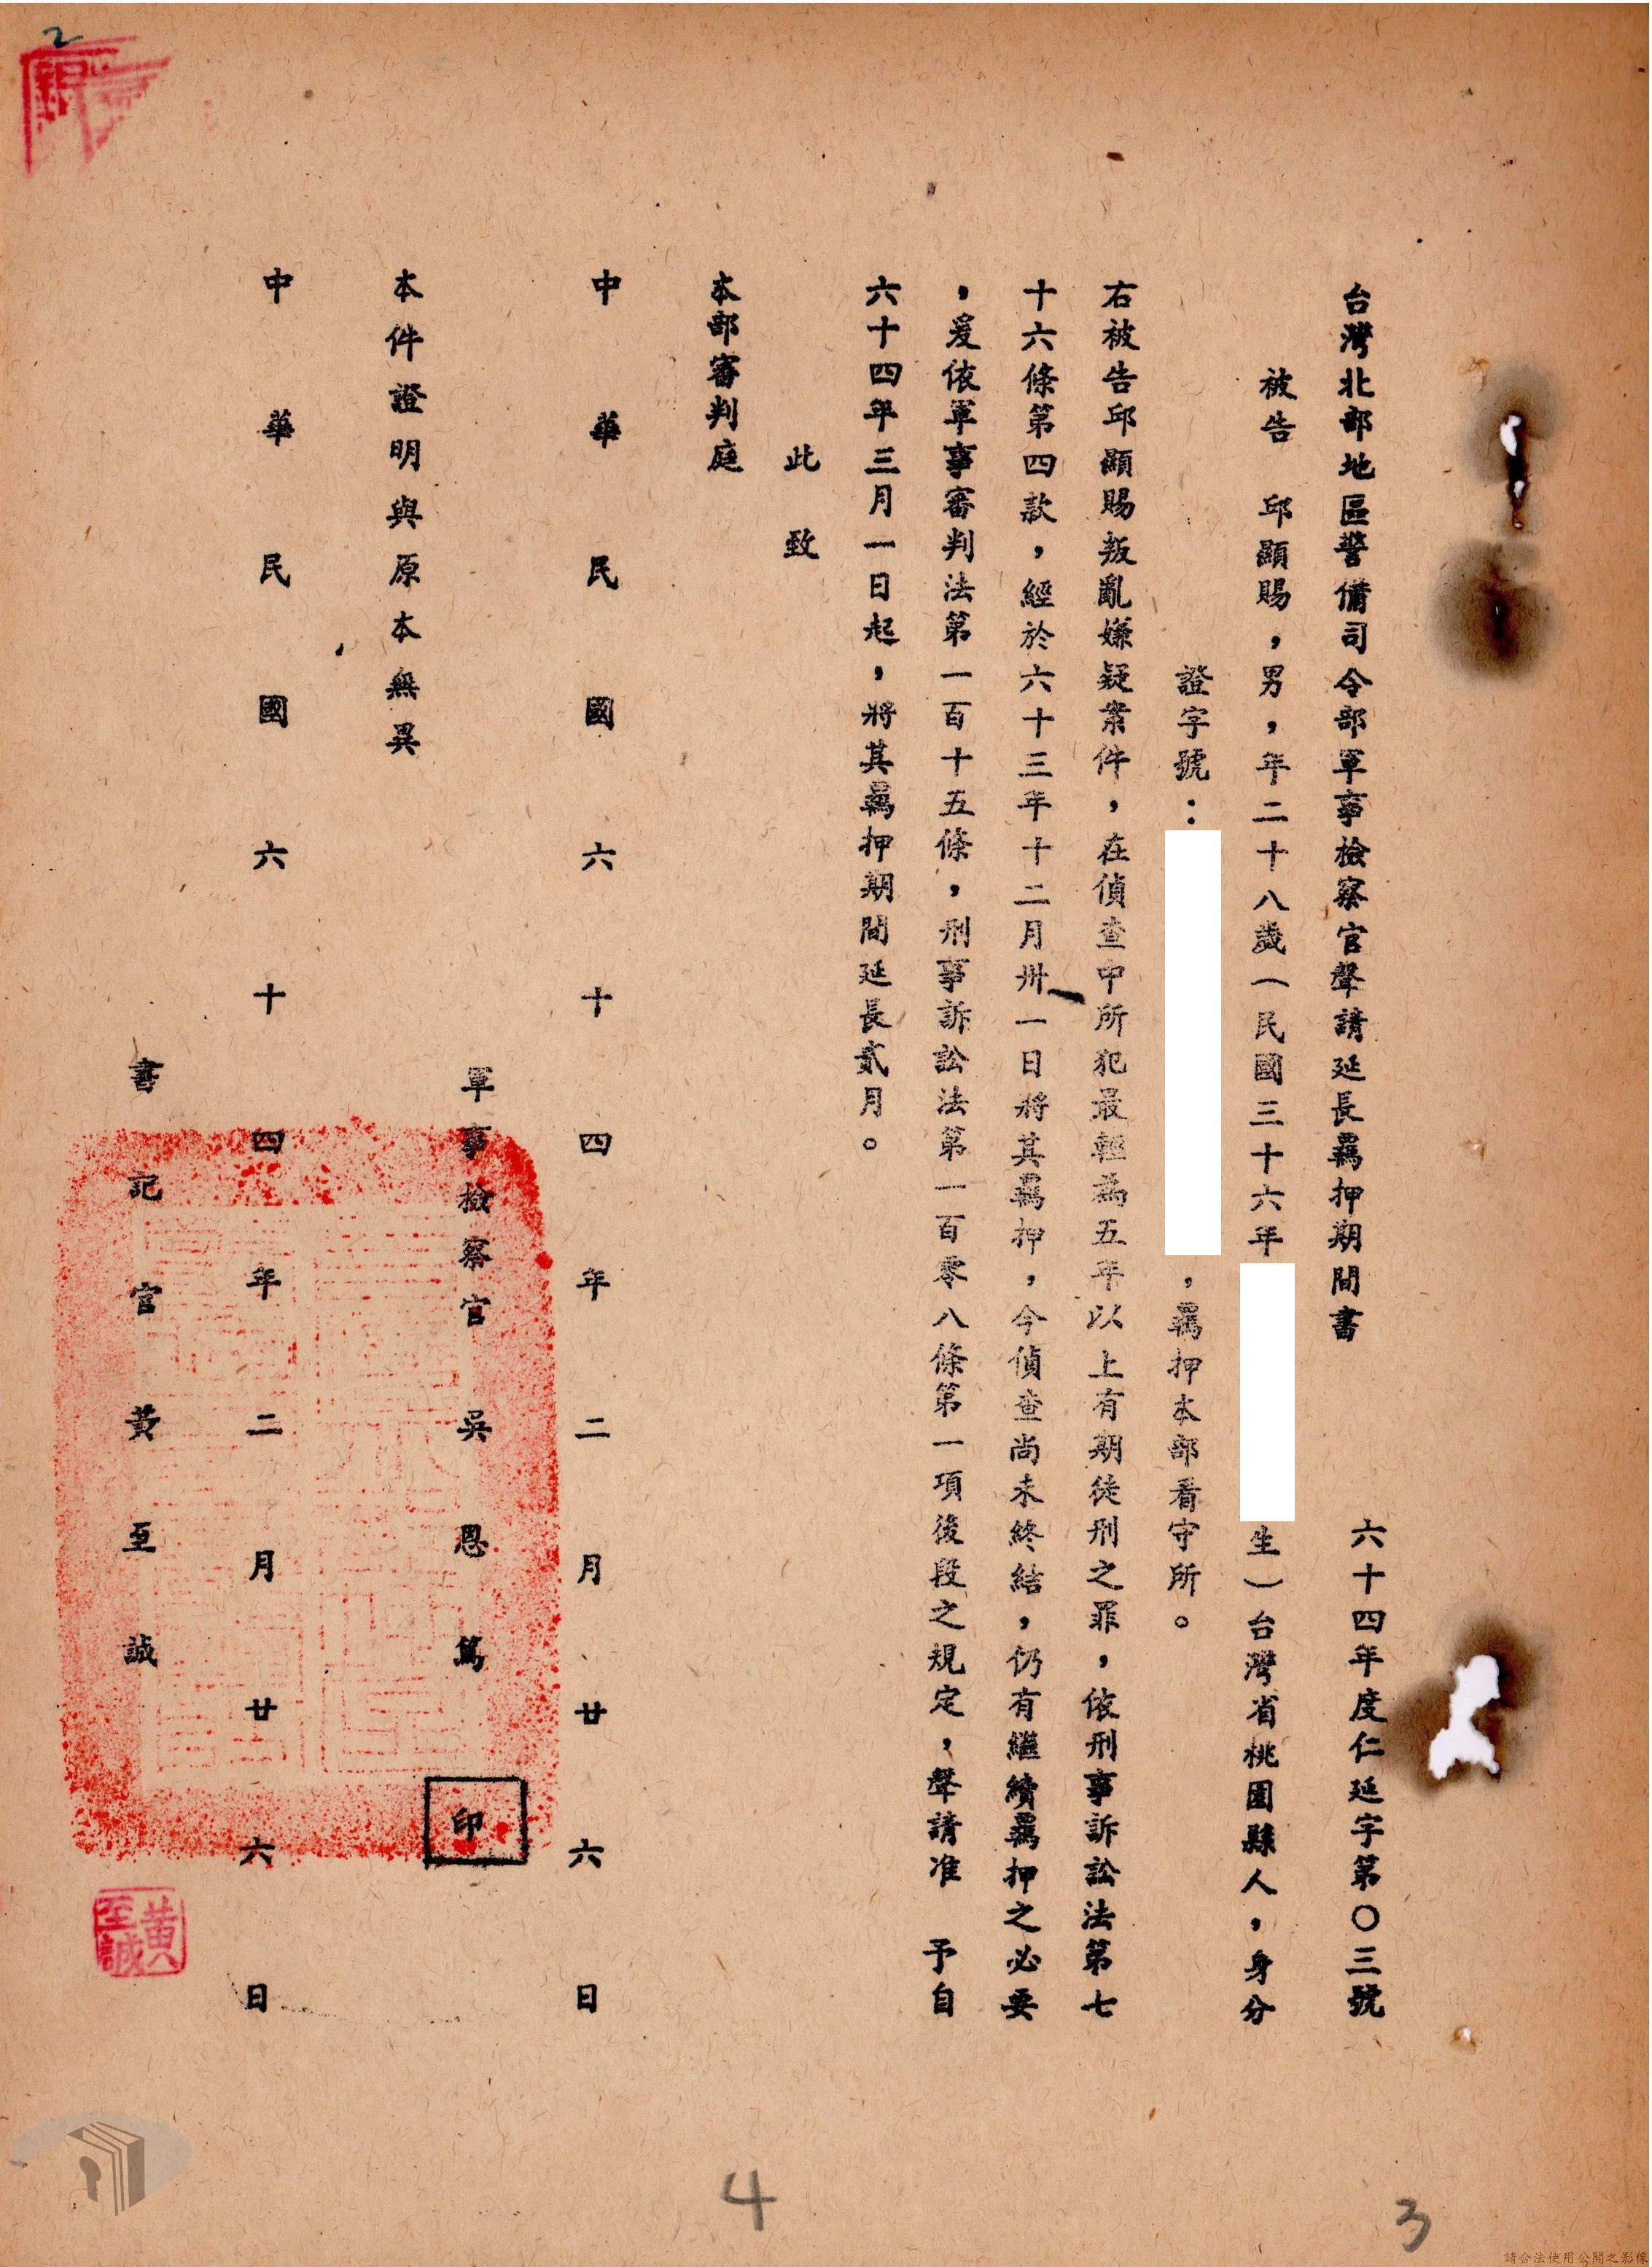 台灣北部地區警備司令部軍事檢察官聲請延長羈押期間書
六十四年度仁延字第〇三號
被告 邱顯賜，男，年二十八歲（民國三十六年 生）台灣省桃園縣人，身分
證字號： ，羈押本部看守所。
右被告邱顯賜叛亂嫌疑案件，在偵查中所犯最輕為五年以上有期徒刑之罪，依刑事訴訟法第七
十六條第四款，經於六十三年十二月卅一日將其羈押，今偵查尚未終結，仍有繼續羈押之必要
，爰依軍事審判法第一百十五條，刑事訴訟法第一百零八條第一項後段之規定，聲請准 予自
六十四年三月一日起，將其羈押期間延長貳月。
此致
本部審判庭
中華民國六十四年二月廿六日
軍事檢察官 吳恩篤
印
本件證明與原本無異
中華民國六十四年二月廿六日
書記官 黃至誠
黃至誠
2
4
3
請合法使用公開之影像